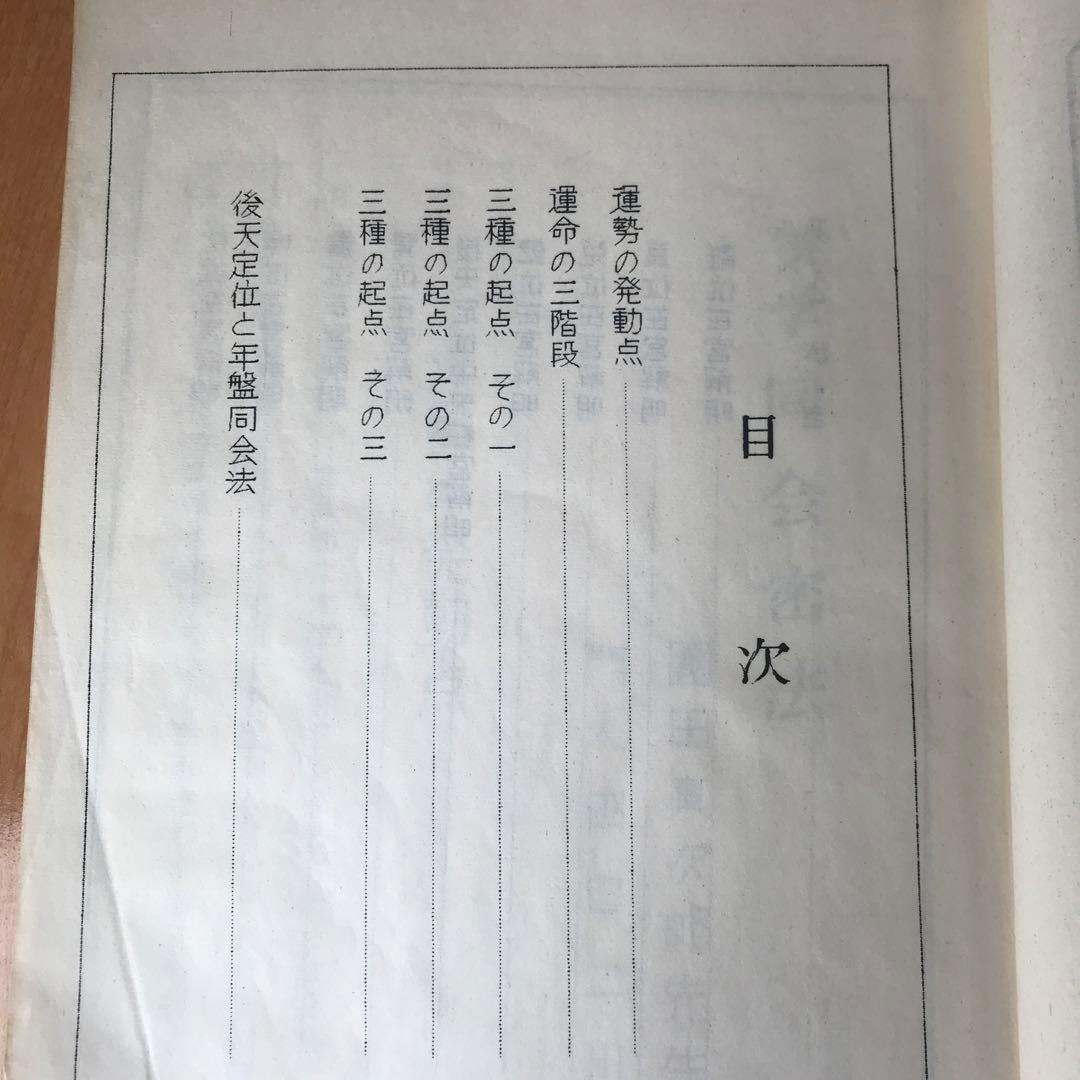 目次
運勢の発動点
運命の三階段
三種の起点 その一
三種の起点 その二
三種の起点 その三
後天定位と年盤同会法